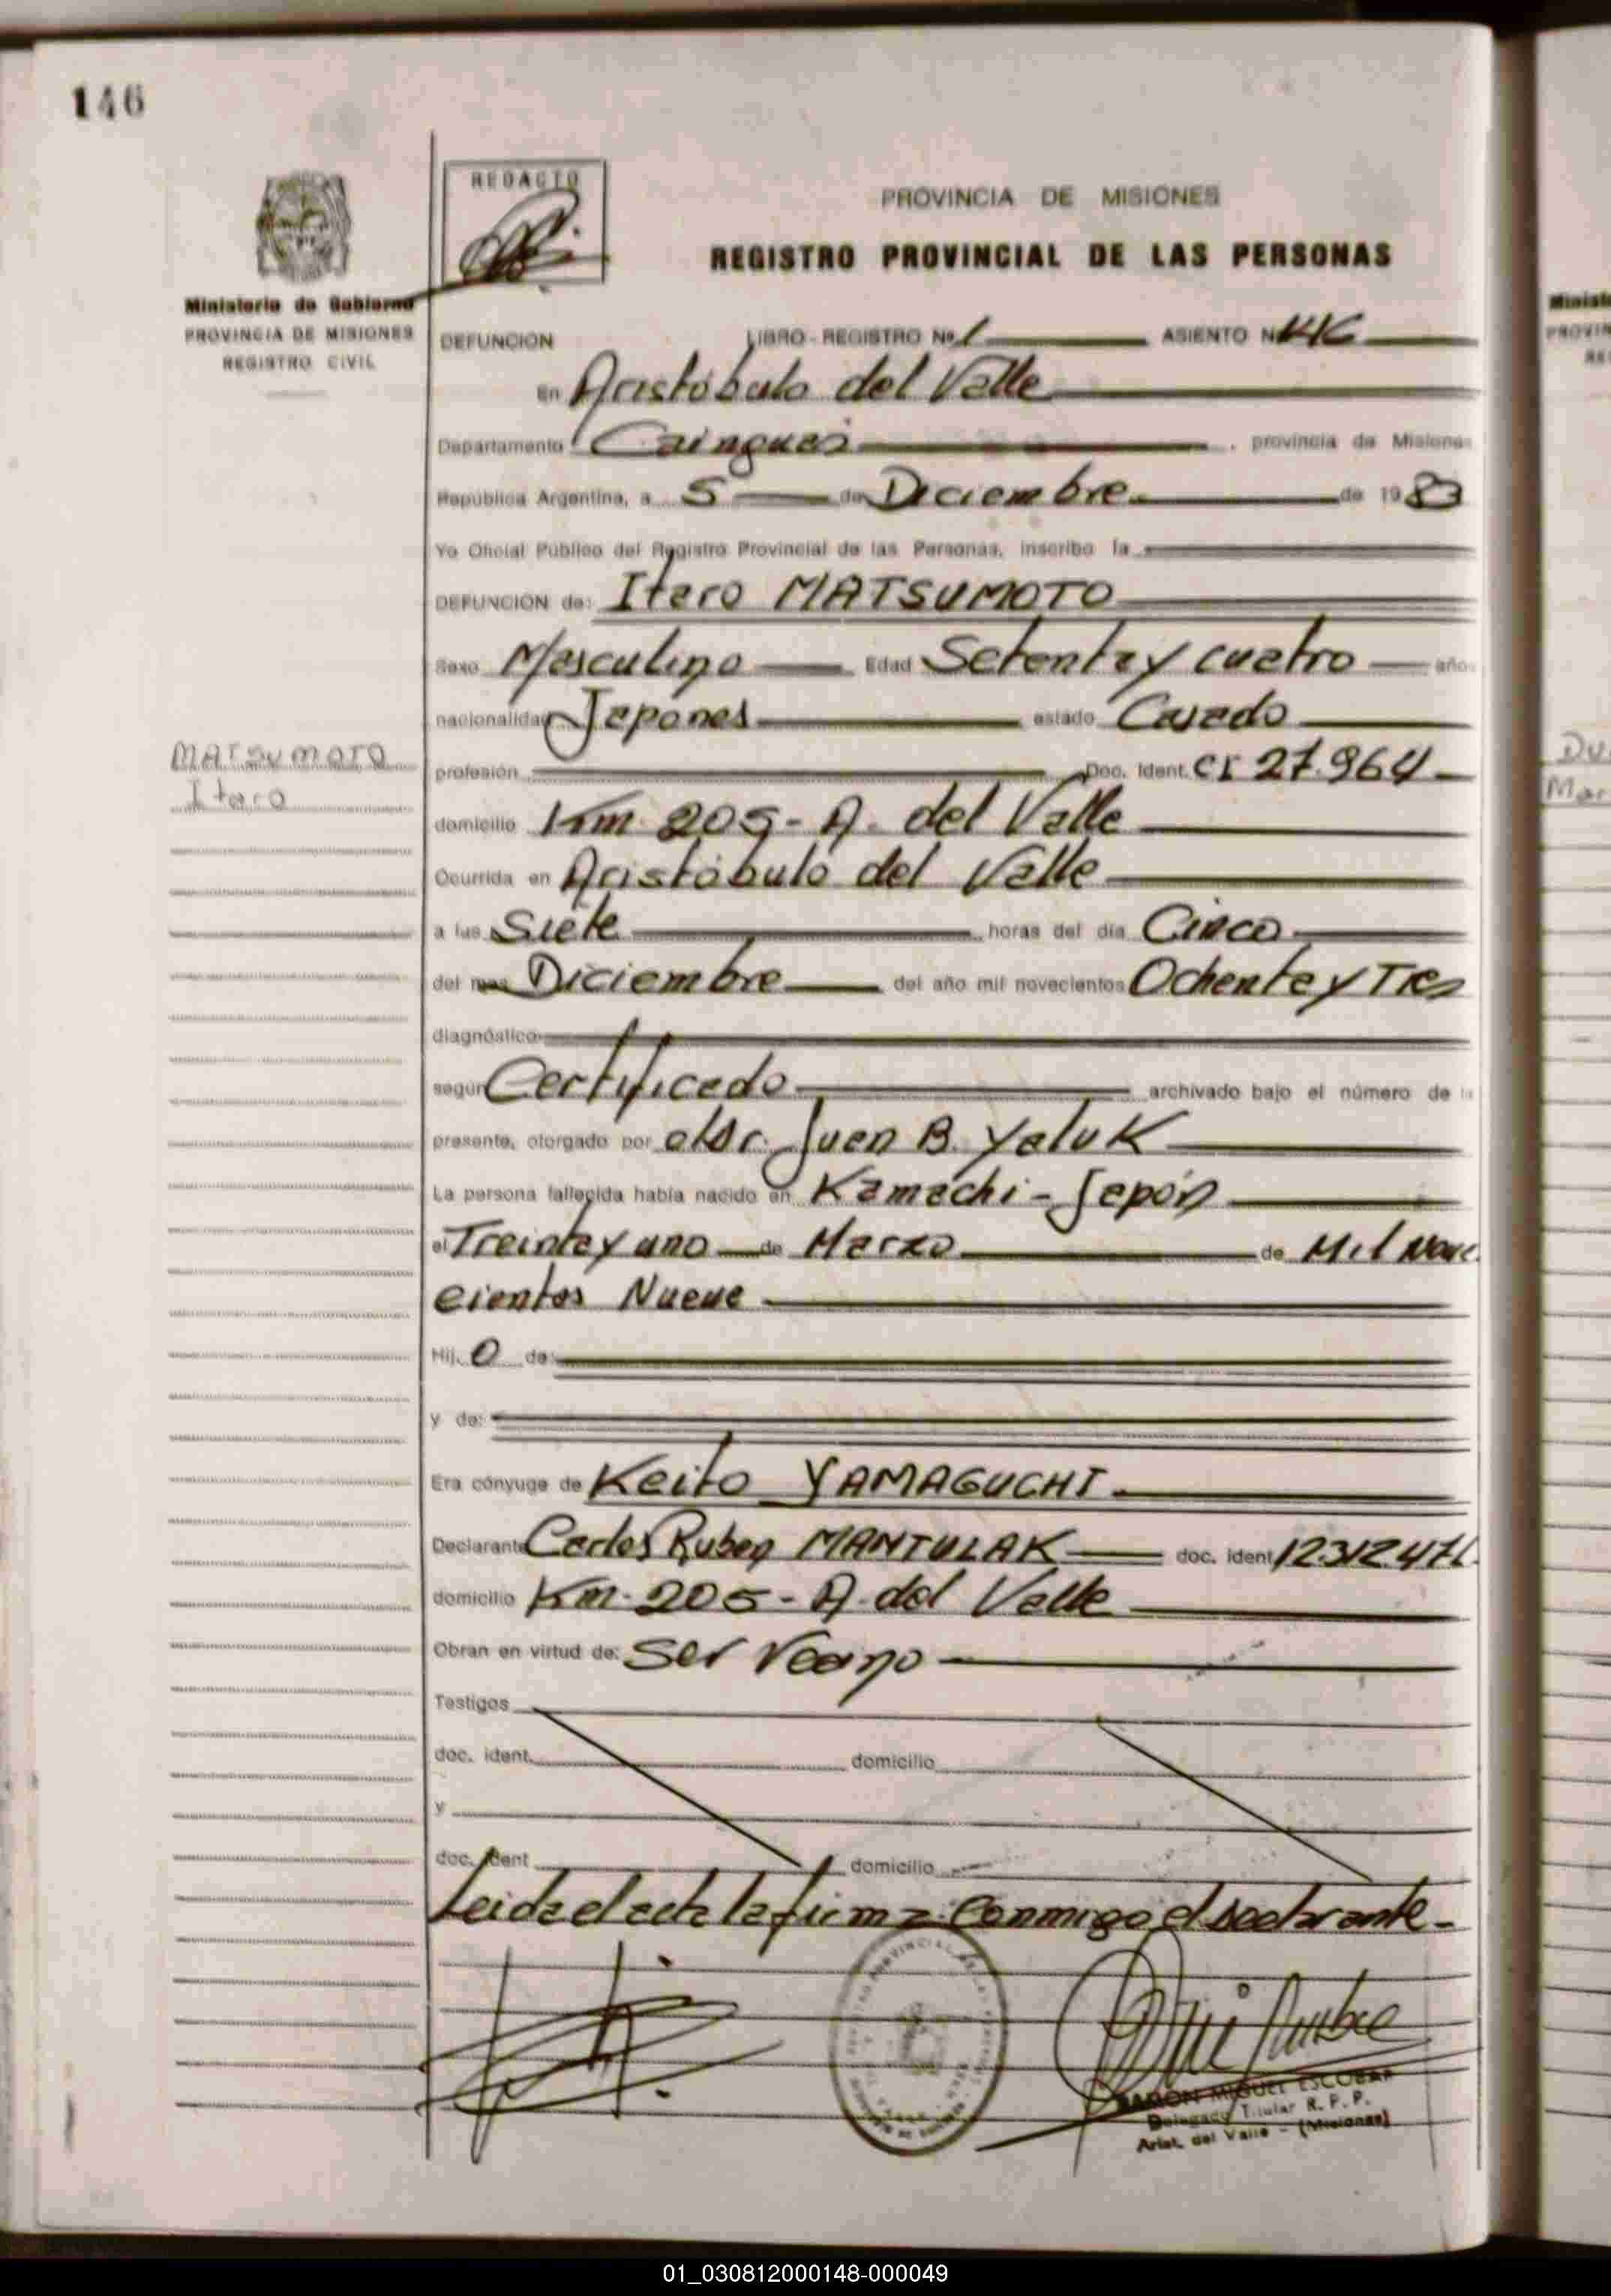 146
REDACTO
PROVINCIA DE MISIONES
REGISTRO PROVINCIAL DE LAS PERSONAS
Ministerio de Gobierno
PROVINCIA DE MISIONES
REGISTRO CIVIL
DEFUNCION LIBRO - REGISTRO No 1 ASIENTO No 146
En Aristóbulo del Valle
Departamento Cainguas, provincia de Misiones
República Argentina, a 5 de Diciembre de 1983
Yo Oficial Público del Registro Provincial de las Personas, inscribo la
DEFUNCION de: Itaro MATSUMOTO
Sexo Masculino Edad Setenta y cuatro años
nacionalidad Japonés estado Casado
MATSUMOTO
Itaro
profesión Doc. Ident. CI 27.964
domicilio Km 205 - A. del Valle
Ocurrida en Aristóbulo del Valle
a las Siete horas del día Cinco
del mes Diciembre del año mil novecientos Ochenta y Tres
diagnóstico
según Certificado archivado bajo el número de la
presente, otorgado por el Dr. Juan B. Yaluk
La persona fallecida había nacido en Kamachi - Japón
el Treinta y uno de Marzo de Mil Nove
cientos Nueve
Hij o de:
y de:
Era cónyuge de Keito YAMAGUCHI
Declarante Carlos Ruben MANTULAK doc. ident. 12.312.471
domicilio Km. 205 - A. del Valle
Obran en virtud de: Ser Vecino
Testigos
doc. ident. domicilio
y
doc. ident domicilio
Leida el acta la firma conmigo el declarante -
MIGUEL ESCOBAR
Delegado Titular R. P. P.
Arist. del Valle - (Misiones)
01_030812000148-000049